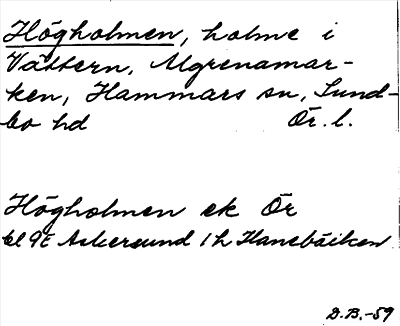 Högholmen, holme i
Vättern, Algrenamar-
ken, Hammars sn, Sund-
bo hd Ör. l.
Högholmen ek Ör
bl 9c Askersund 1h Hanebäcken
D.B.-59